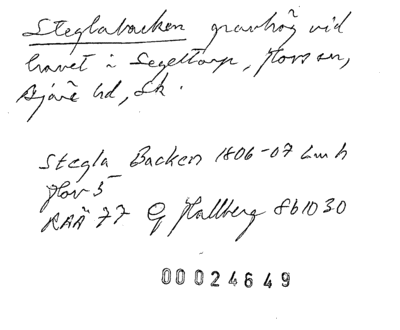 Steglabacken gravhög vid
havet i Segeltorp, Hovs sn,
Bjäre hd, Sk.
Stegla Backen 1806-07 Lmh
Hov 5
RAÄ 77 G Hallberg 861030
00024649